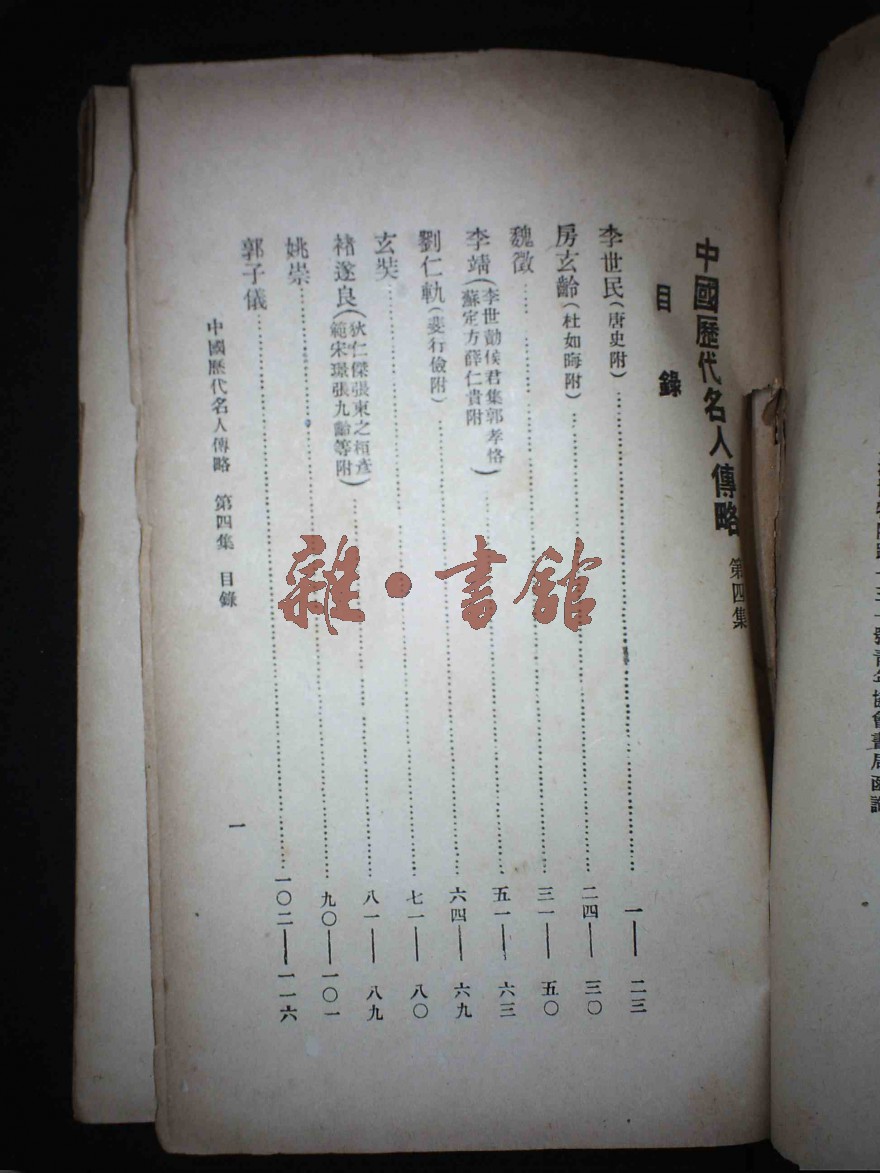 中國歷代名人傳略 第四集
目錄
李世民(唐史附)……一——二三
房玄齡(杜如晦附)……二四——三〇
魏徵……三一——五〇
李靖(李世勣侯君集郭孝恪蘇定方薛仁貴附)……五一——六三
劉仁軌(裴行儉附)……六四——六九
玄奘……七一——八〇
褚遂良(狄仁傑張柬之桓彥範宋璟張九齡等附)……八一——八九
姚崇……九〇——一〇一
郭子儀……一〇二——一一六
中國歷代名人傳略 第四集 目錄
一
雜·書館
號青年協會書局函